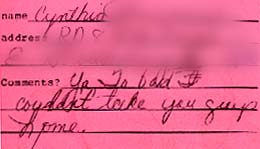 name Cynthia
address RD
Comments? Ya To bad I
couldn't take you guys
home.